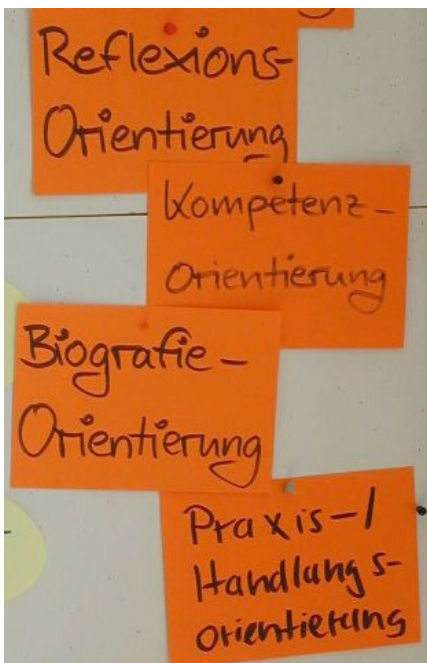 Reflexions-
Orientierung
Kompetenz-
Orientierung
Biografie-
Orientierung
Praxis-/
Handlungs-
orientierung